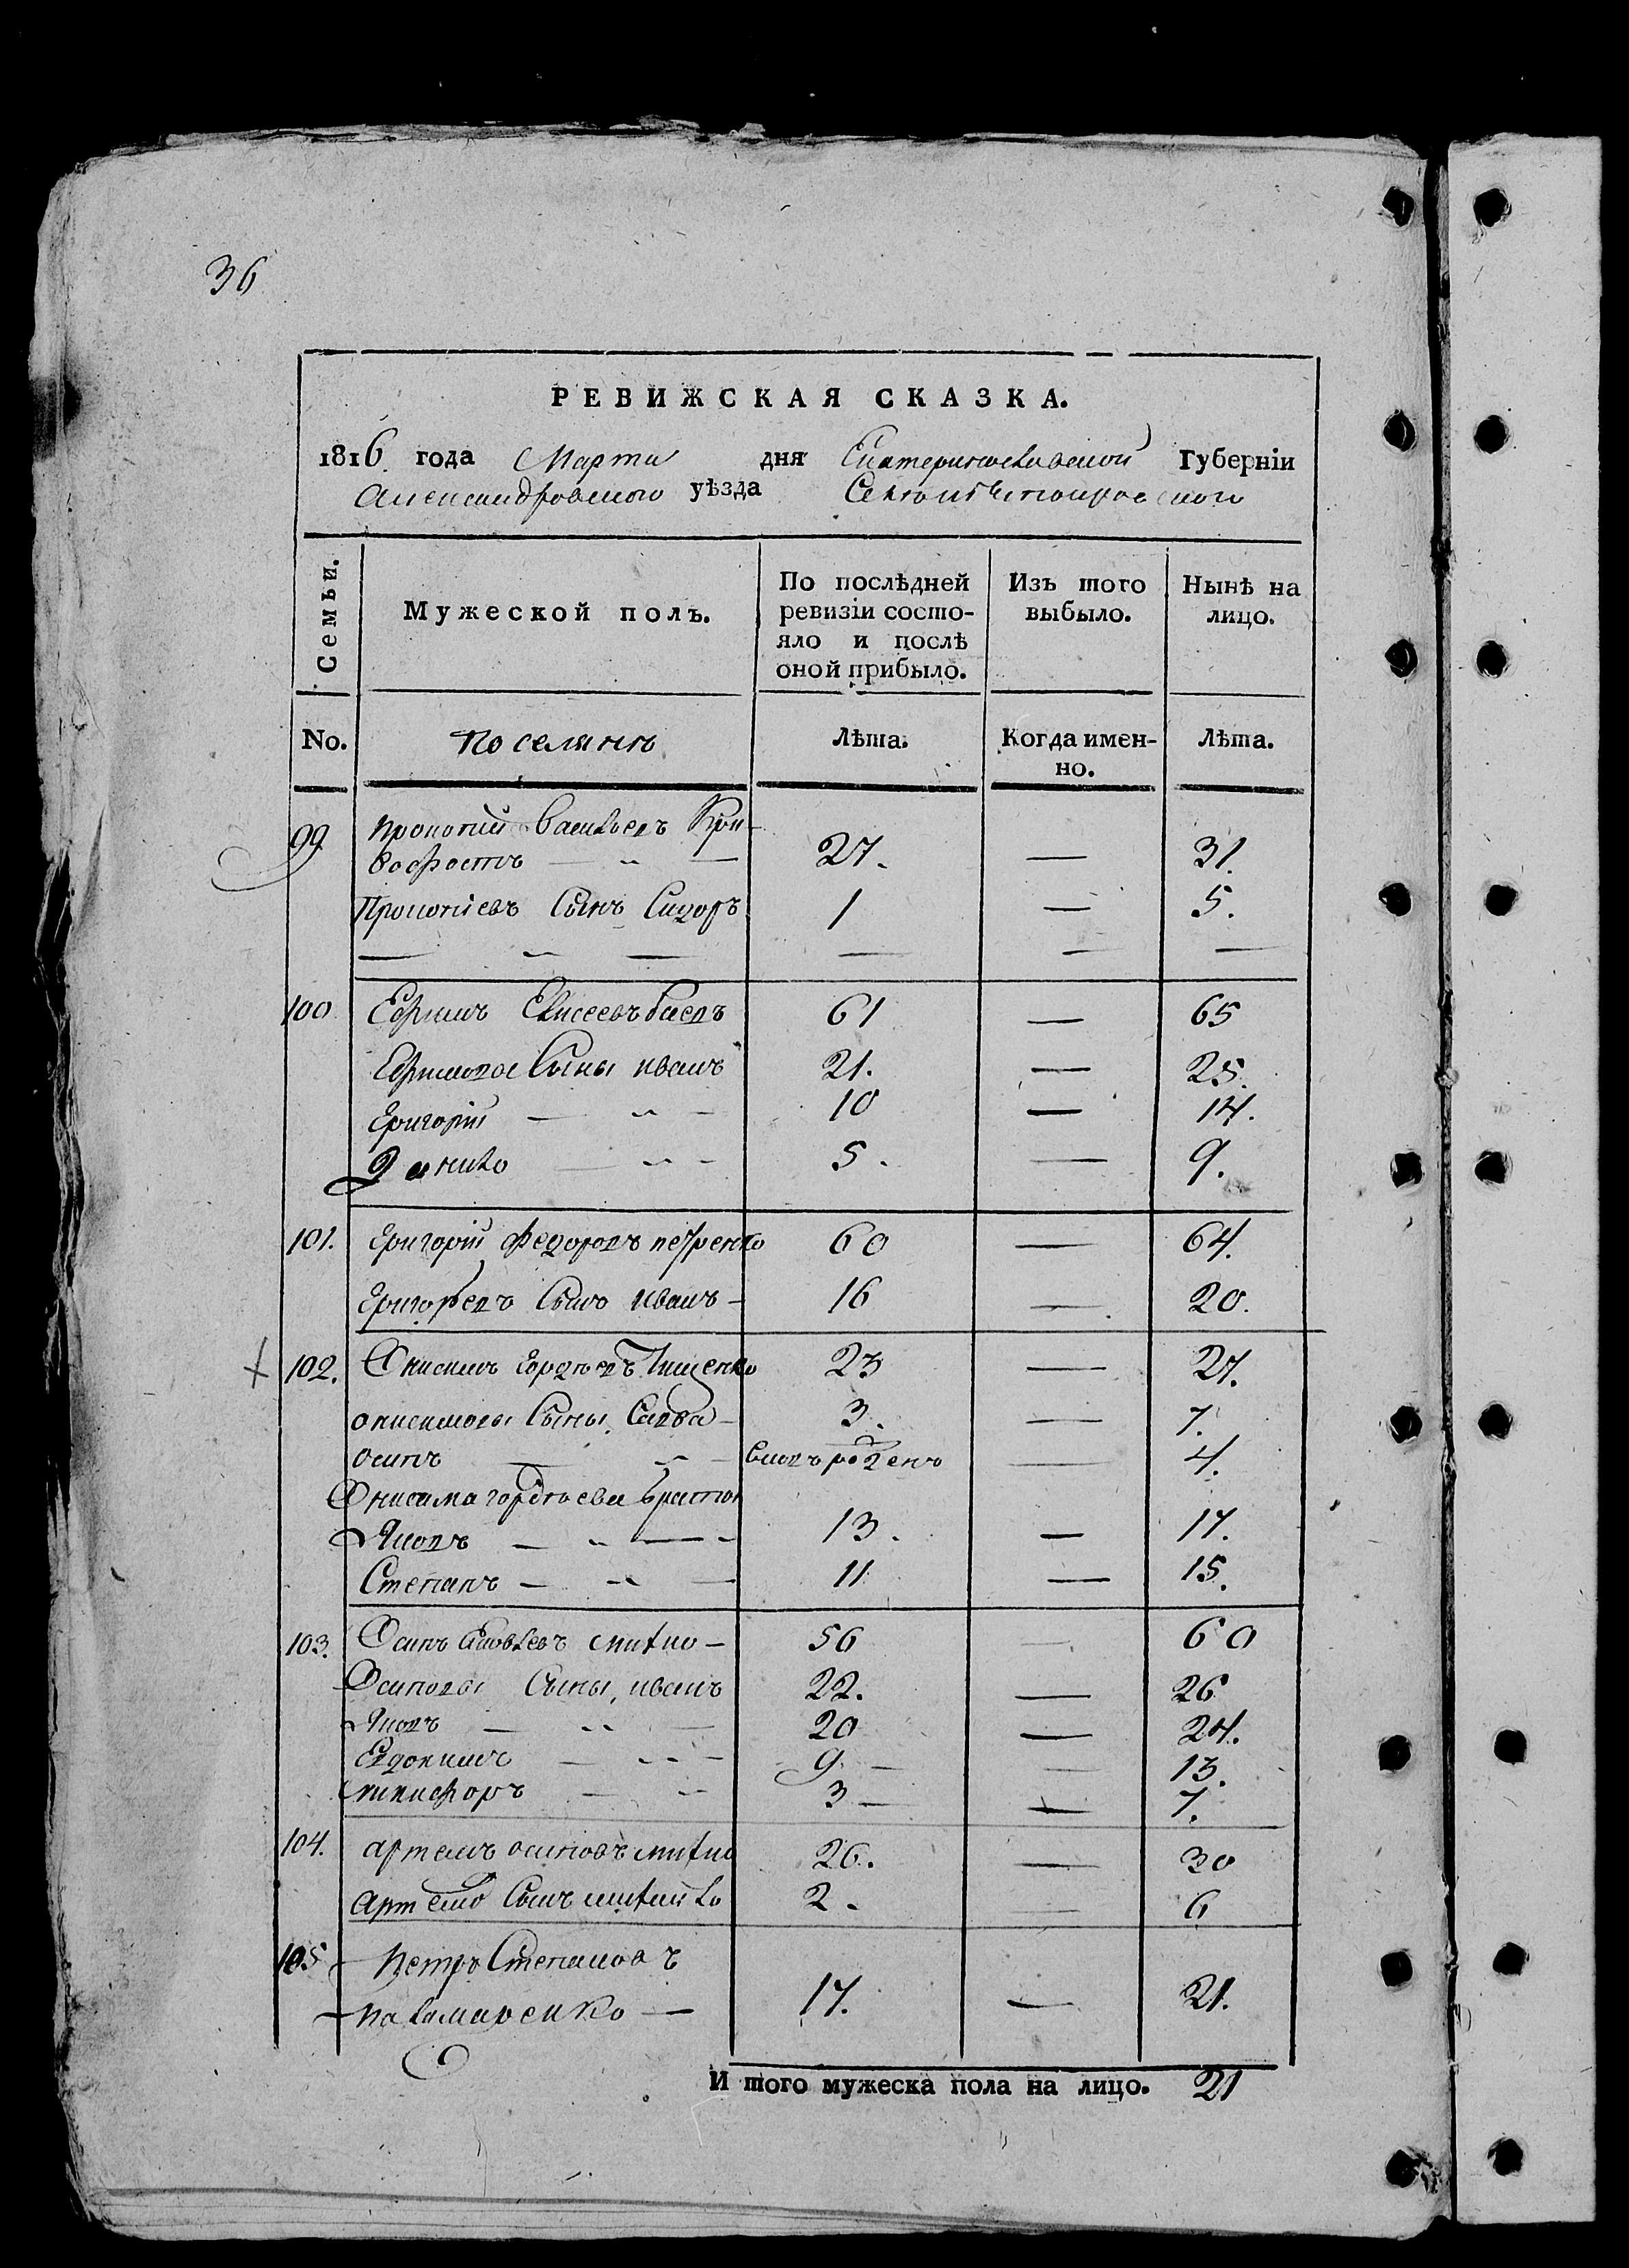 36
РЕВИЖСКАЯ СКАЗКА.
1816 года Марта дня Екатеринославской Губерніи
Александровского уѣзда Села
Семьи.
Мужеской полъ.
По послѣдней
ревизіи состо-
яло и послѣ
оной прибыло.
Изъ того
выбыло.
Нынѣ на
лицо.
No. Поселянъ Лѣта. Когда имен-
но. Лѣта.
99 Прокопий Васильевъ Кри-
воhвостъ — " — 27. — 31.
Прокопіевъ Сынъ Сидоръ 1 — 5.
— " — — — —
100 Ефимъ Елисеевъ 61 — 65
Ефимовы Сыны иванъ 21. — 25.
Григорій — " — 10 — 14.
Данило — " — 5. — 9.
101. Григорій Федоровъ петренко 60 — 64.
Григорьевъ Сынъ иванъ — 16 — 20.
102. Онисимъ Гордѣевъ Тищенко 23 — 27.
онисимовы Сыны, Савва — 3. — 7.
осипъ — " — вновь рожденъ — 4.
Онисима гордѣева братья
Яковъ — " — 13. — 17.
Степанъ — " — 11 — 15.
103. Осипъ Яковлевъ 56 — 60
Осиповы Сыны, иванъ 22. — 26
Яковъ — " — 20 — 24.
Евдокимъ — " — 9 — 13.
никифоръ — " — 3 — 7.
104. артемъ осиповъ 26. — 30
Артемо Сынъ 2. — 6
105 Петро Степановъ
Паламаренко — 17. — 21.
И того мужеска пола на лицо. 21